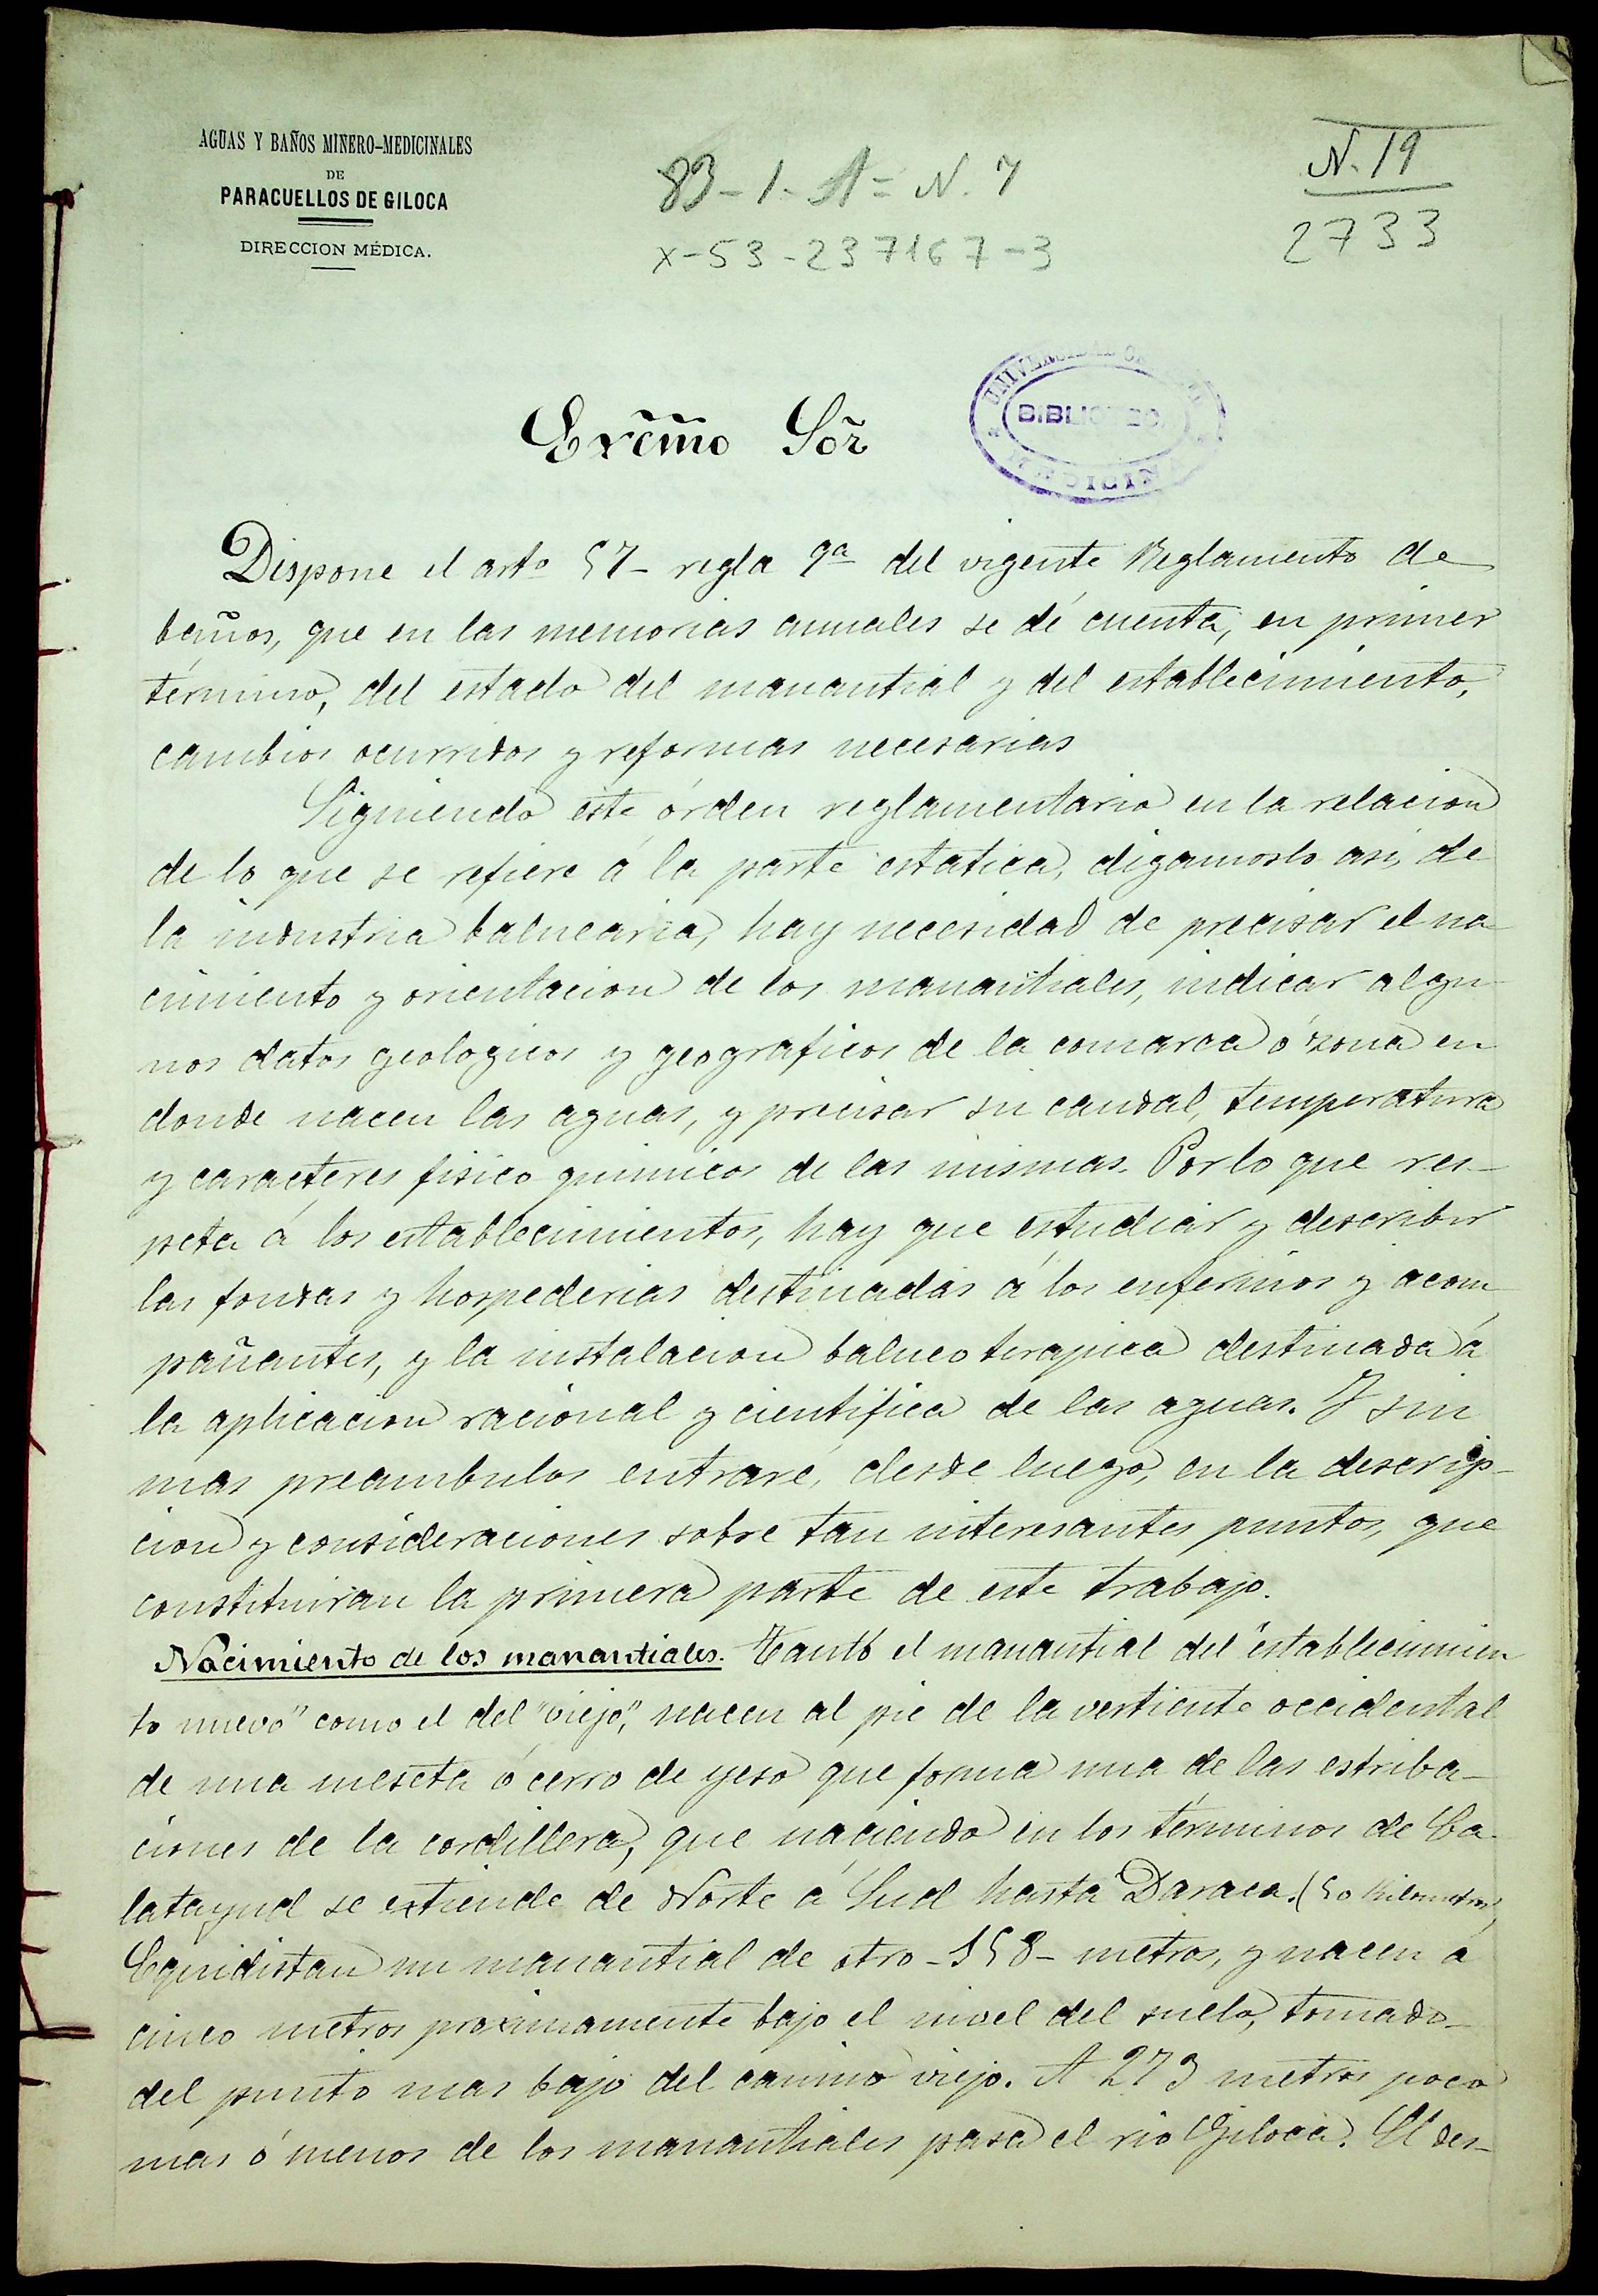 AGUAS Y BAÑOS MINERO-MEDICINALES
DE
PARACUELLOS DE GILOCA
DIRECCION MÉDICA.
83-1-A=N. 7
X-53-237167-3
N. 19
2733
Excm̃o Sor̃
BIBLIOTECA
MEDICINA
Dispone el artº 57- regla 9ª del vigente Reglamento de
baños, que en las memorias anuales se dé cuenta, en primer
término, del estado del manantial y del establecimiento,
cambios ocurridos y reformas necesarias
Siguiendo este órden reglamentario en la relacion
de lo que se refiere á la parte estatica, digamoslo asi, de
la industria balnearia, hay necesidad de precisar el na-
cimiento y orientacion de los manantiales, indicar algu-
nos datos geologicos y geograficos de la comarca ó zona en
donde nacen las aguas, y precisar su caudal, temperatura
y caracteres fisico quimicos de las mismas. Por lo que res-
peta á los establecimientos, hay que estudiar y describir
las fondas y hospederias destinadas á los enfermos y acom
pañantes, y la instalacion balneoterapica destinada á
la aplicacion racional y cientifica de las aguas. Y sin
mas preambulos entraré, desde luego, en la descrip-
cion y consideraciones sobre tan interesantes puntos, que
constituiran la primera parte de este trabajo.
Nacimiento de los manantiales. Tanto el manantial del "establecimien
to nuevo" como el del "viejo", nacen al pie de la vertiente occidental
de una meseta ó cerro de yeso que forma una de las estriba-
ciones de la cordillera, que naciendo en los términos de Ca-
latayud se extiende de Norte á Sud hasta Daroca. (50 Kilometros)
Equidistan un manantial de otro -158- metros, y nacen á
cinco metros proximamente bajo el nivel del suelo, tomado-
del punto mas bajo del camino viejo. A 273 metros poco
mas ó menos de los manantiales pasa el rio Giloca. El des-